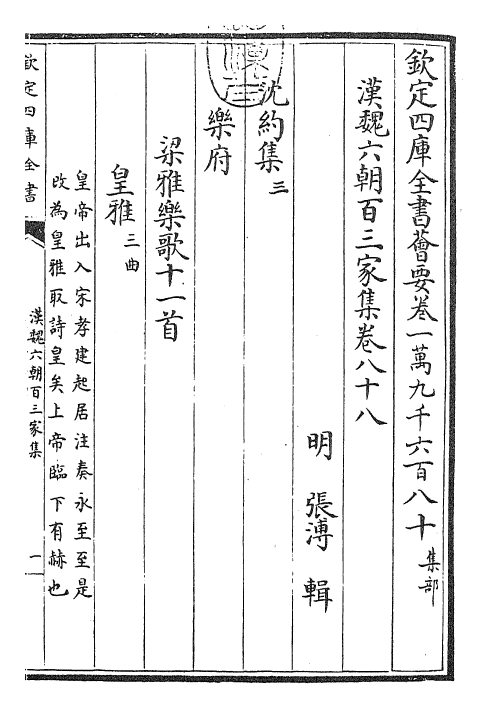 欽定四庫全書薈要卷一萬九千六百八十 集部
漢魏六朝百三家集卷八十八
明 張溥 輯
沈約集 三
樂府
梁雅樂歌十一首
皇雅 三曲
皇帝出入宋孝建起居注奏永至至是
改為皇雅取詩皇矣上帝臨下有赫也
欽定四庫全書
漢魏六朝百三家集
一